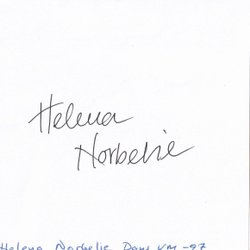 Helena
Norbelie
Helena Norbelie Dans VM -97